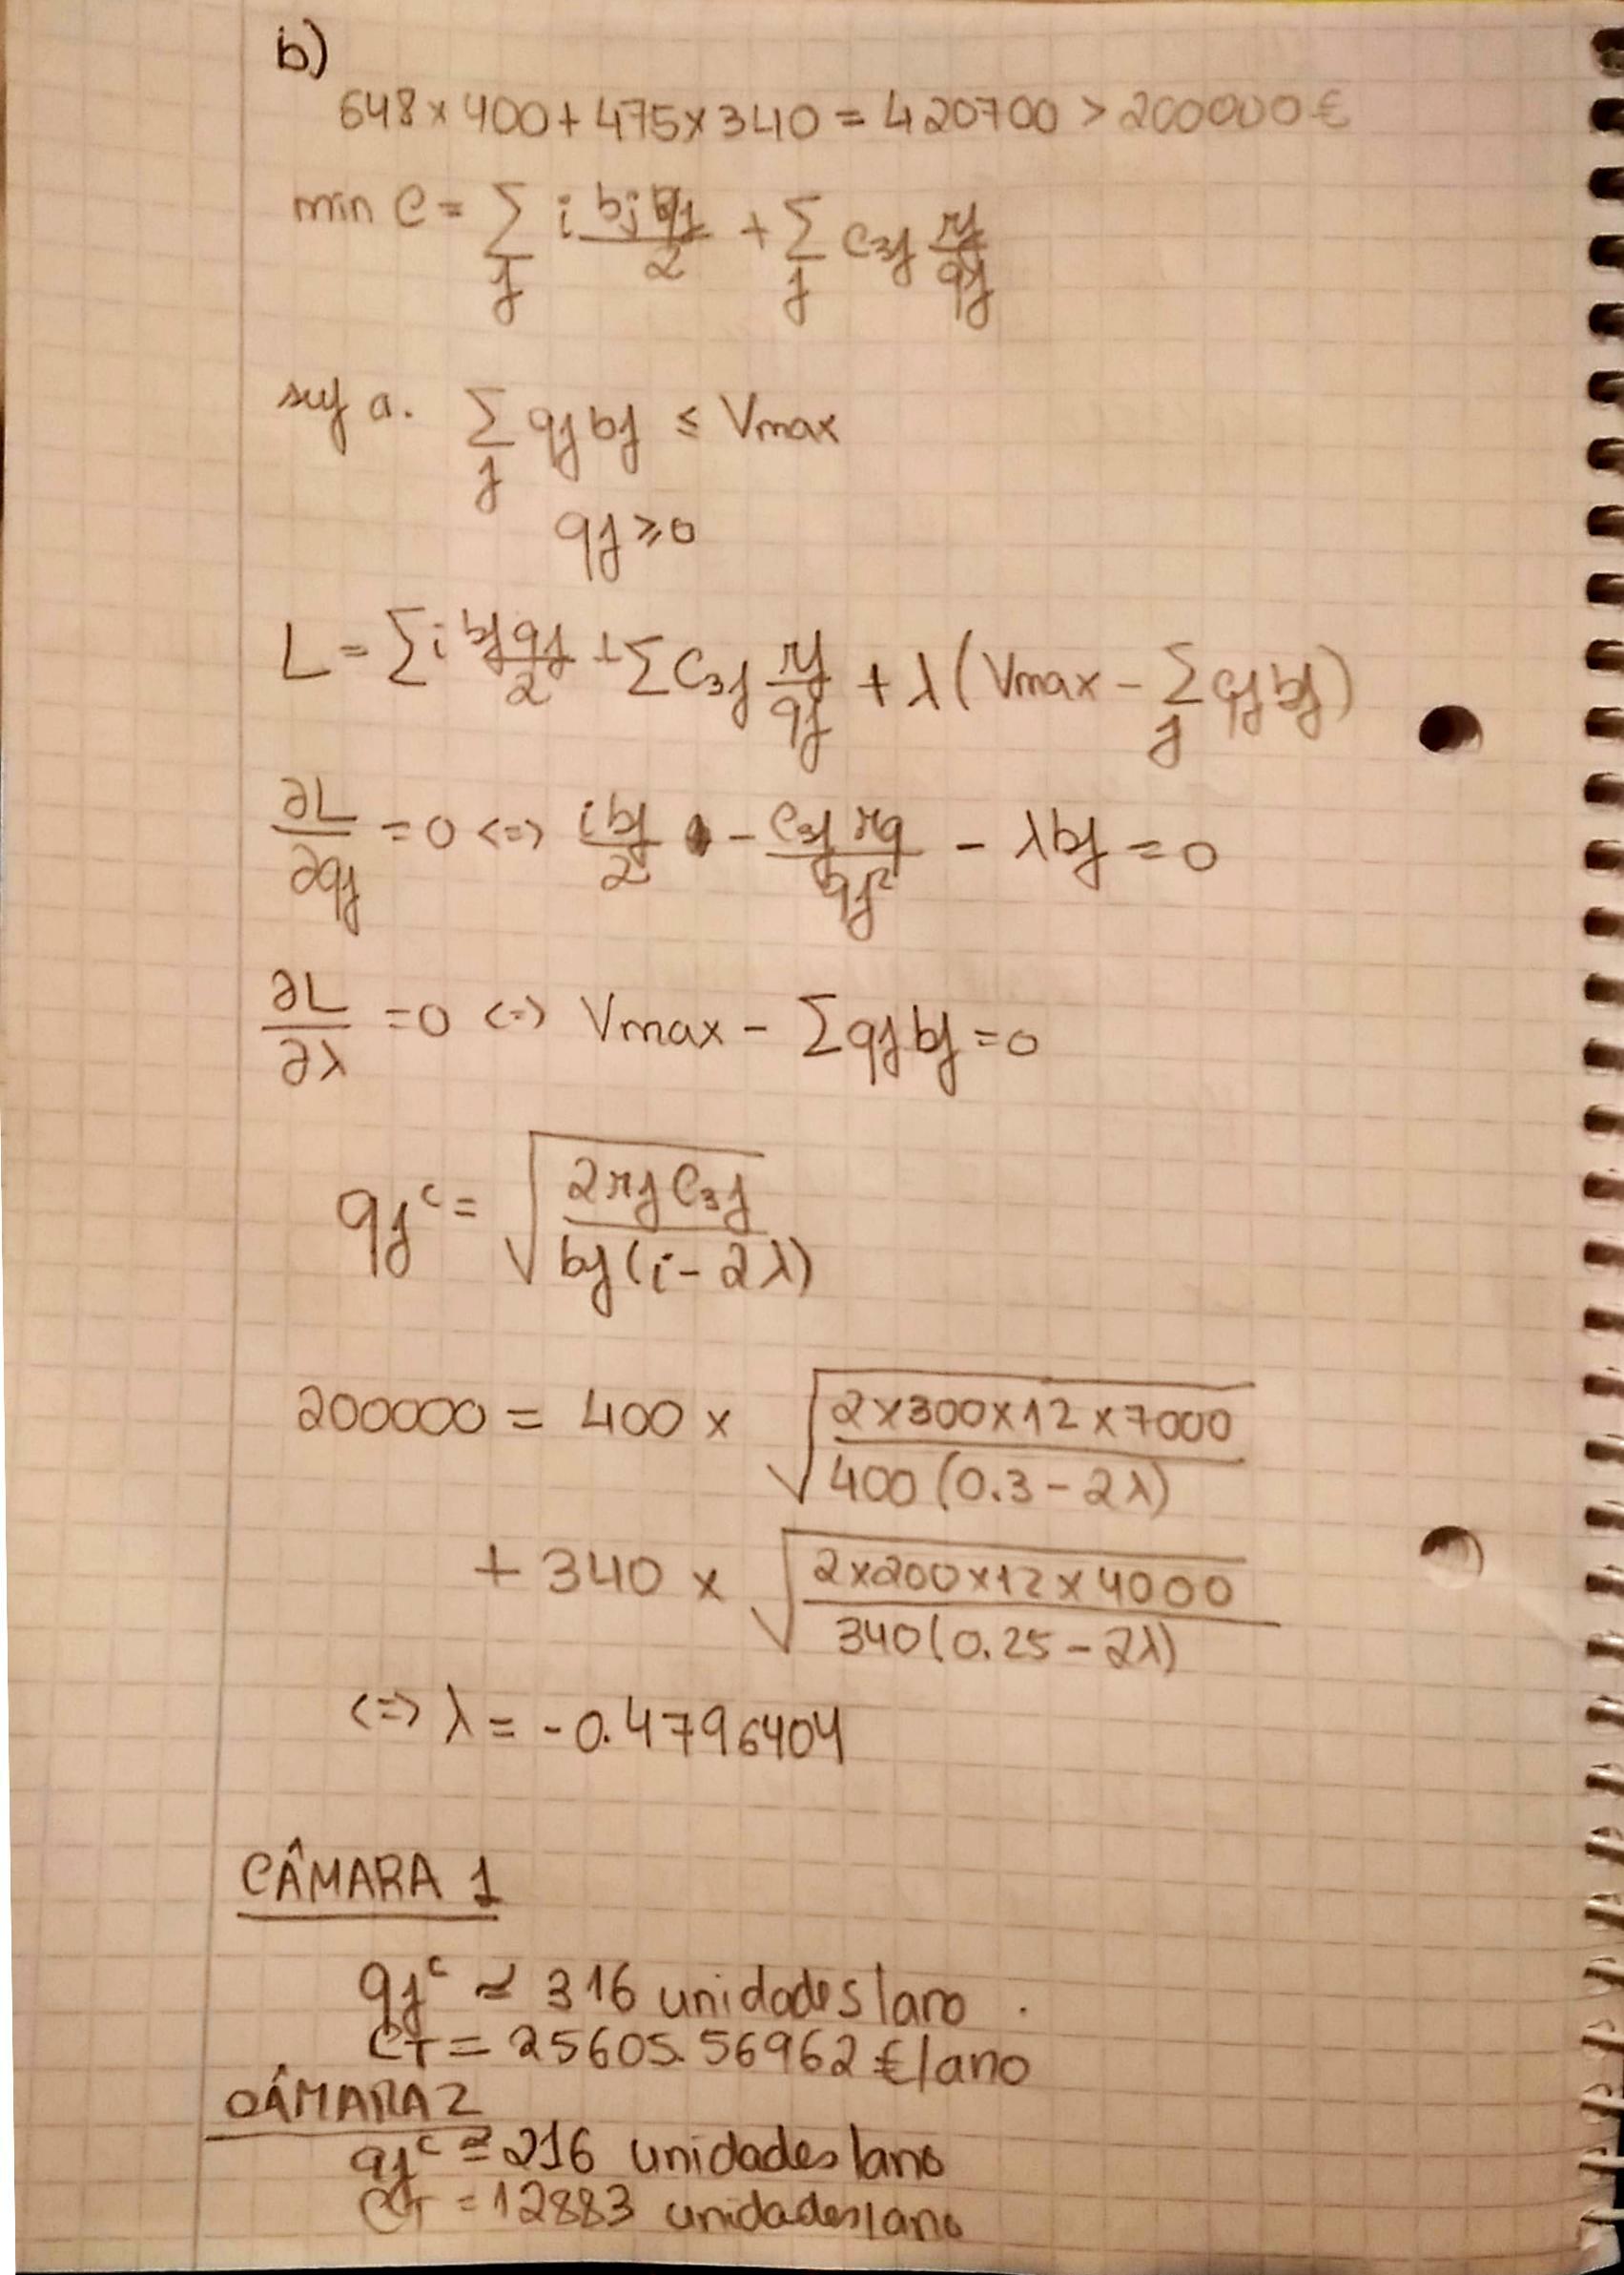 b)
648 × 400 + 475 × 340 = 420700 > 200000 €
min C = Σj i bj qj / 2 + Σj C3j rj / qj
suj a. Σj qj bj ≤ Vmax
qj ≥ 0
L = Σ i bj qj / 2 + Σ C3j rj / qj + λ (Vmax - Σj qj bj)
∂L / ∂qj = 0 <=> i bj / 2 - C3j rj / qj² - λ bj = 0
∂L / ∂λ = 0 <=> Vmax - Σ qj bj = 0
qj^c = √( 2 rj C3j / bj (i - 2λ) )
200000 = 400 × √( 2×300×12×7000 / 400 (0.3 - 2λ) )
+ 340 × √( 2×200×12×4000 / 340 (0.25 - 2λ) )
<=> λ = -0.4796404
CÂMARA 1
qj^c ≃ 316 unidades/ano
CT = 25605.56962 €/ano
CÂMARA 2
qj^c ≃ 216 unidades/ano
CT = 12883 unidades/ano